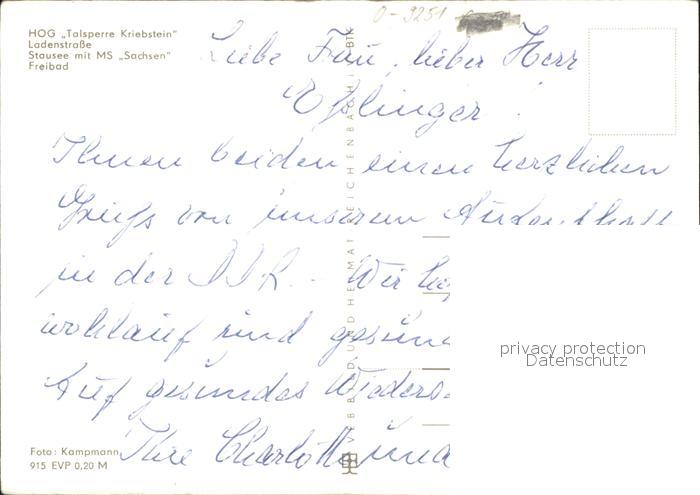 HOG „Talsperre Kriebstein"
Ladenstraße
Stausee mit MS „Sachsen"
Freibad
0-3251
Liebe Frau, lieber Herr
Eßlinger
Ihnen beiden einen herzlichen
Gruß von unserem Aufenthalt
in der DDR. Wir
wohlauf und
Auf gesundes
Ihre Charlotte und
VEB BILD UND HEIMAT REICHENBACH
privacy protection
Datenschutz
Foto: Kampmann
915 EVP 0,20 M